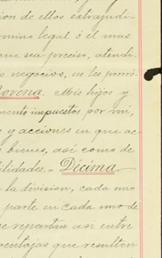 ion de ellos estrajudi-
rmino legal ó el mas
ue sea preciso, atendi-
s negocios, en les prorro
Novena. Mis hijos y
mento impuestos por mi,
y acciones en que ac
bienes, asi como de
ilidades.= Décima.
la division, cada uno
parte en cada uno de
se repartan asi entre
ventajas que resulten